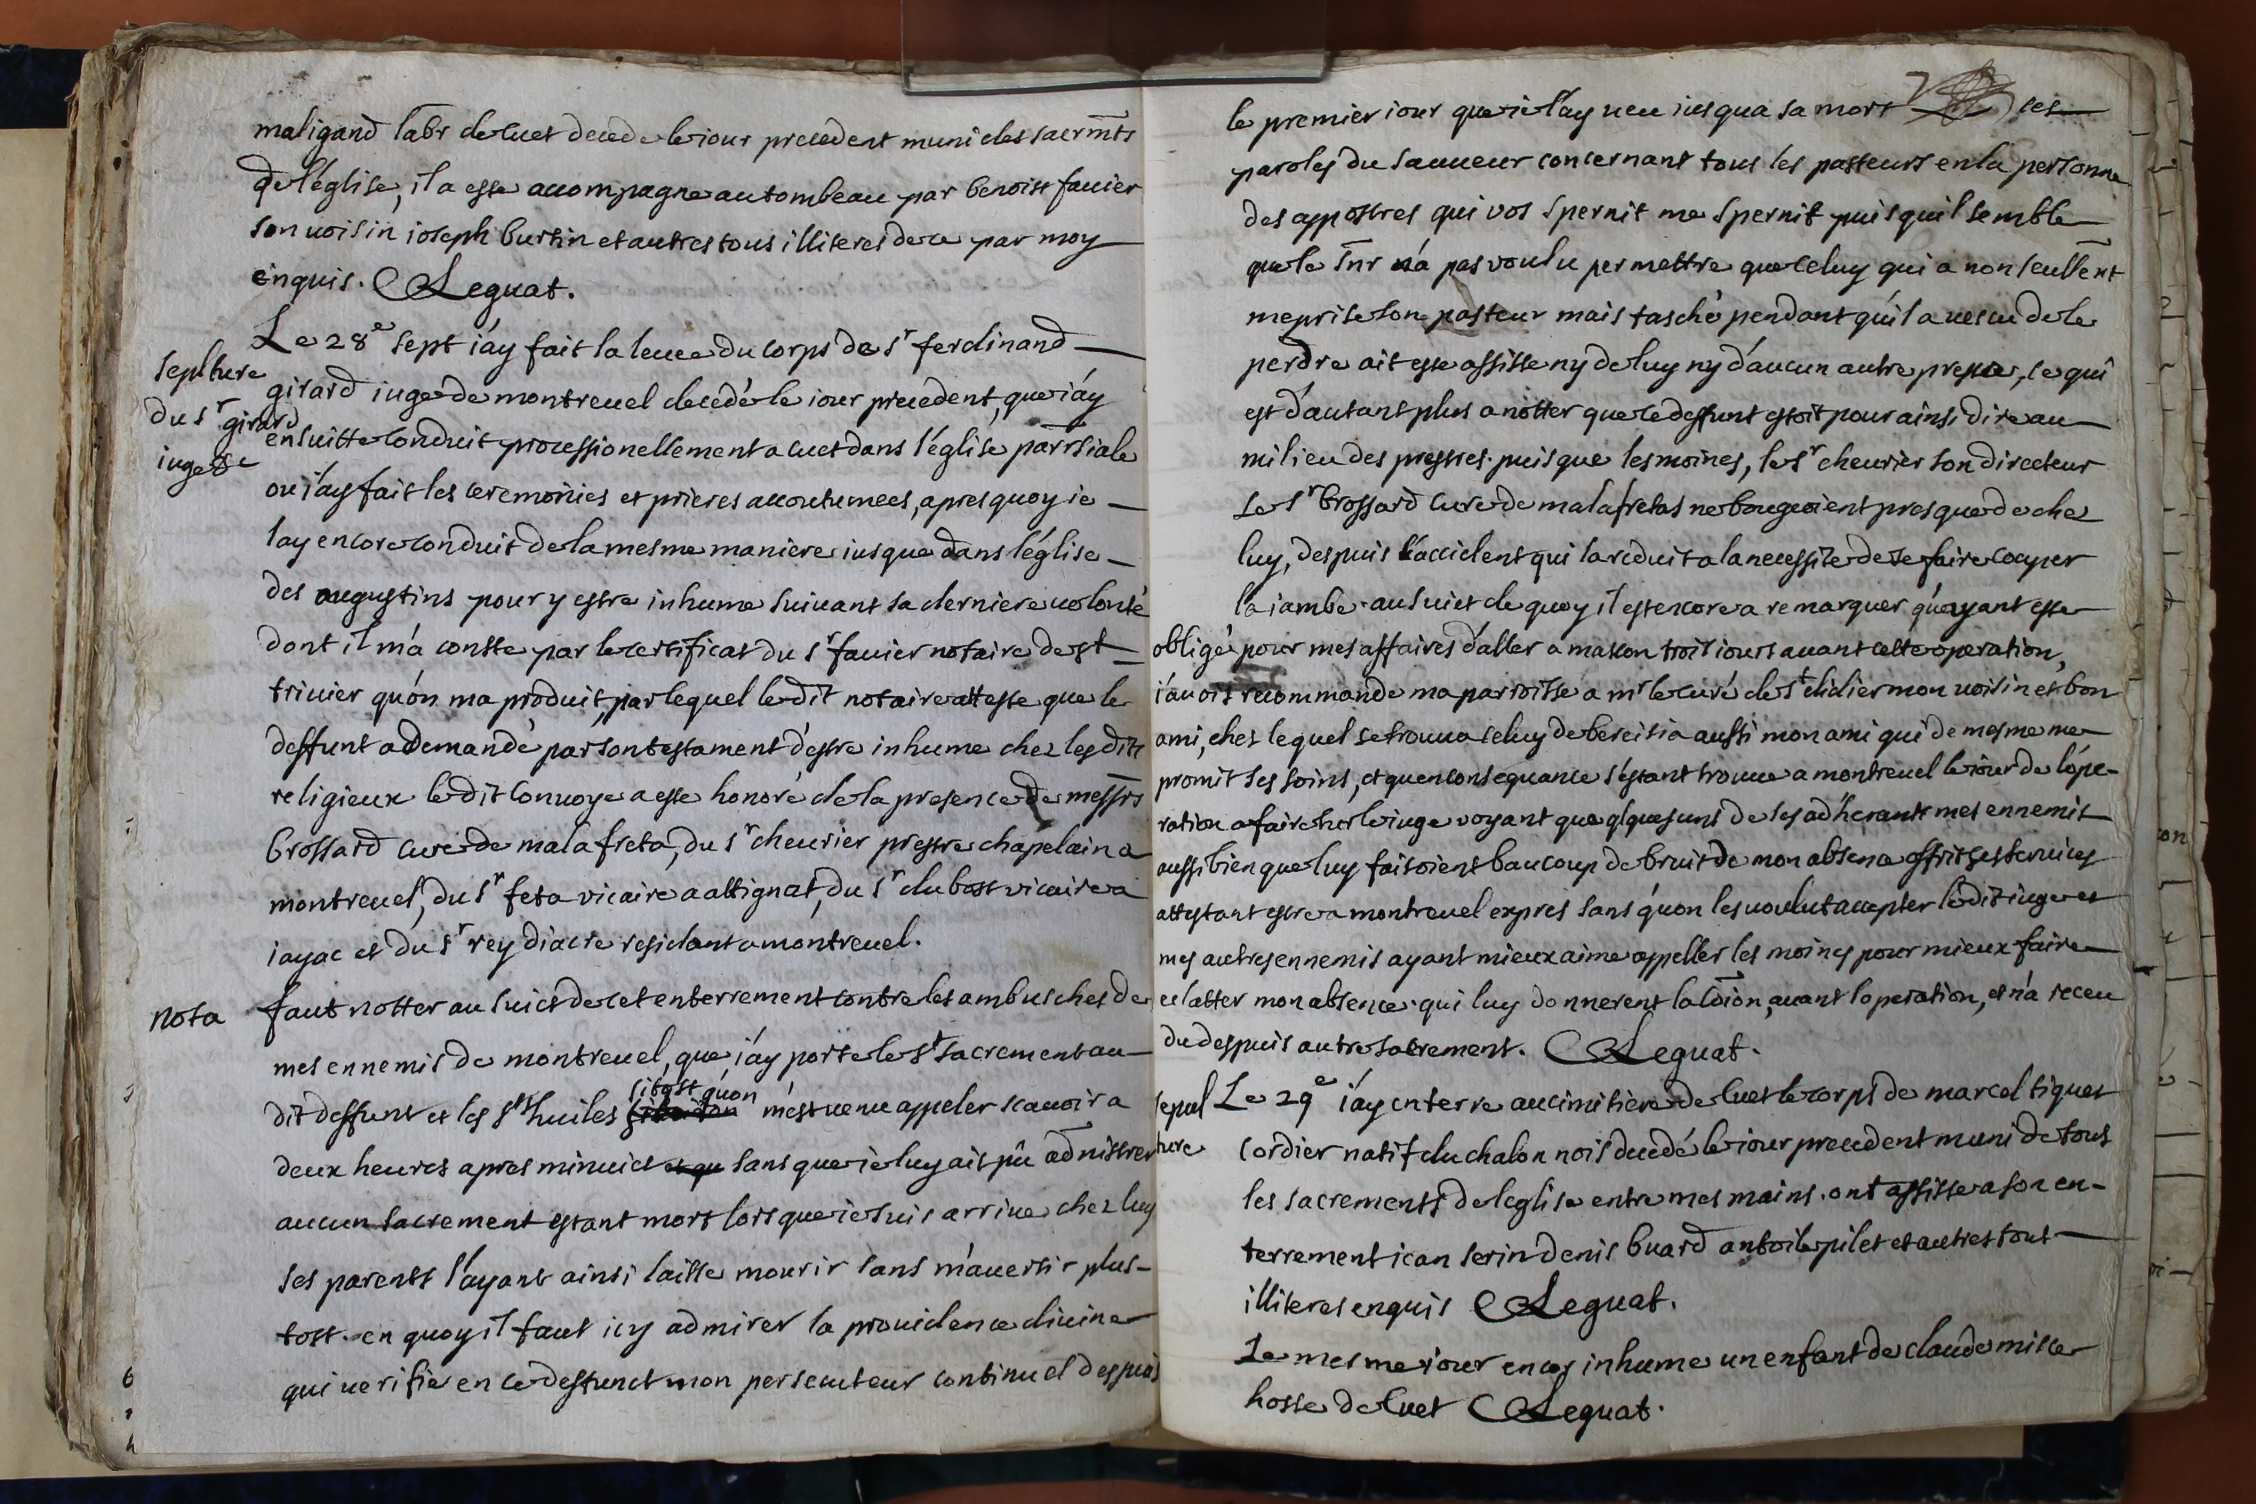 maligand labr de cuet decede le iour precedent muni des sacrmts
de l'église, il a este accompagne au tombeau par benoist fauier
son uoisin ioseph burtin et autres tous illiteres de ce par moy
enquis. Leguat.
Le 28e sept i'ay fait la leuee du corps de sr ferdinand
sepulture
du sr girard
iuge &c
girard iuge de montreuel decedé le iour precedent, que i'ay
ensuitte conduit processionellement a cuet dans l'église parrsiale
ou i'ay fait les ceremonies et prieres accoutumees, apres quoy ie
lay encore conduit de la mesme maniere iusque dans l'église
des augustins pour y estre inhume suiuant sa derniere uolonté
dont il m'a conste par le certificat du sr fauier notaire de st
triuier qu'on ma produit, par lequel le dit notaire atteste que le
deffunt a demandé par son testament d'estre inhume chez les dits
religieux le dit conuoye a este honoré de la presence de messrs
brossard curé de malafreta, du sr cheurier prestre chapelain a
montreuel, du sr feta vicaire a attignat, du sr dubost vicaire a
iayac et du sr rey diacre residant a montreuel.
nota
faut notter au suiet de cet enterrement contre les ambusches de
mes ennemis de montreuel, que i'ay porte le st sacrement au
dit deffunt et les stes huiles sitost qu'on m'est uenu appeler scauoir a
deux heures apres minuict et qu sans que ie luy ait pû admistrer
aucun sacrement estant mort lors que ie suis arriue chez luy
ses parents l'ayant ainsi laisse mourir sans m'auertir plus-
tost. en quoy il faut icy admirer la prouidence diuine
qui uerifie en ce deffunct mon persecuteur continuel despuis
7
le premier iour que ie l'ay ueu iusqua sa mort ces
paroles du sauueur concernant tous les pasteurs en la personne
des appostres qui vos spernit me spernit puis quil semble
que le snr n'a pas voulu permettre que celuy qui a non seullemt
meprise son pasteur mais tasché pendant qu'il a uescu de le
perdre ait este assiste ny de luy ny d'aucun autre prestre, ce qui
est d'autant plus a notter que le deffunt estoit pour ainsi dire au
milieu des prestres. puisque les moines, le sr cheurier son directeur
Le sr brossard curé de malafretas ne bougeoient presque de chez
luy, despuis l'accident qui la reduit a la necessite de se faire couper
la iambe. au suiet de quoy il est encore a remarquer qu'ayant este
obligé pour mes affaires d'aller a mascon trois iours auant cette operation,
i'auois recommande ma parroisse a mr le curé de st didier mon uoisin et bon
ami, chez lequel se trouua celuy de bereisia aussi mon ami qui de mesme me
promit ses soins, et qu'en consequance s'estant trouue a montreuel le iour de l'ope-
ration a faire chez le iuge voyant que qlques uns de ses adherants mes ennemis
aussi bien que luy faisoient baucoup de bruit de mon absence offrit ses seruices
attestant estre a montreuel expres sans qu'on les uoulut accepter le dit iuge et
mes autres ennemis ayant mieux aime appeller les moines pour mieux faire
eclatter mon absence. qui luy donnerent la coion, auant l'operation, et n'a receu
du despuis autre sacrement. Leguat.
sepul
ture
Le 29e i'ay enterre au cimitiere de Cuet le corps de marcel tiquet
cordier natif du chalonnois decedé le iour precedent muni de tous
les sacrements de l'eglise entre mes mains. ont assiste a son en-
terrement iean serin denis buard antoile pilet et autres tous
illiteres enquis Leguat.
Le mesme iour encor inhume un enfant de claude miste
hoste de Cuet Leguat.